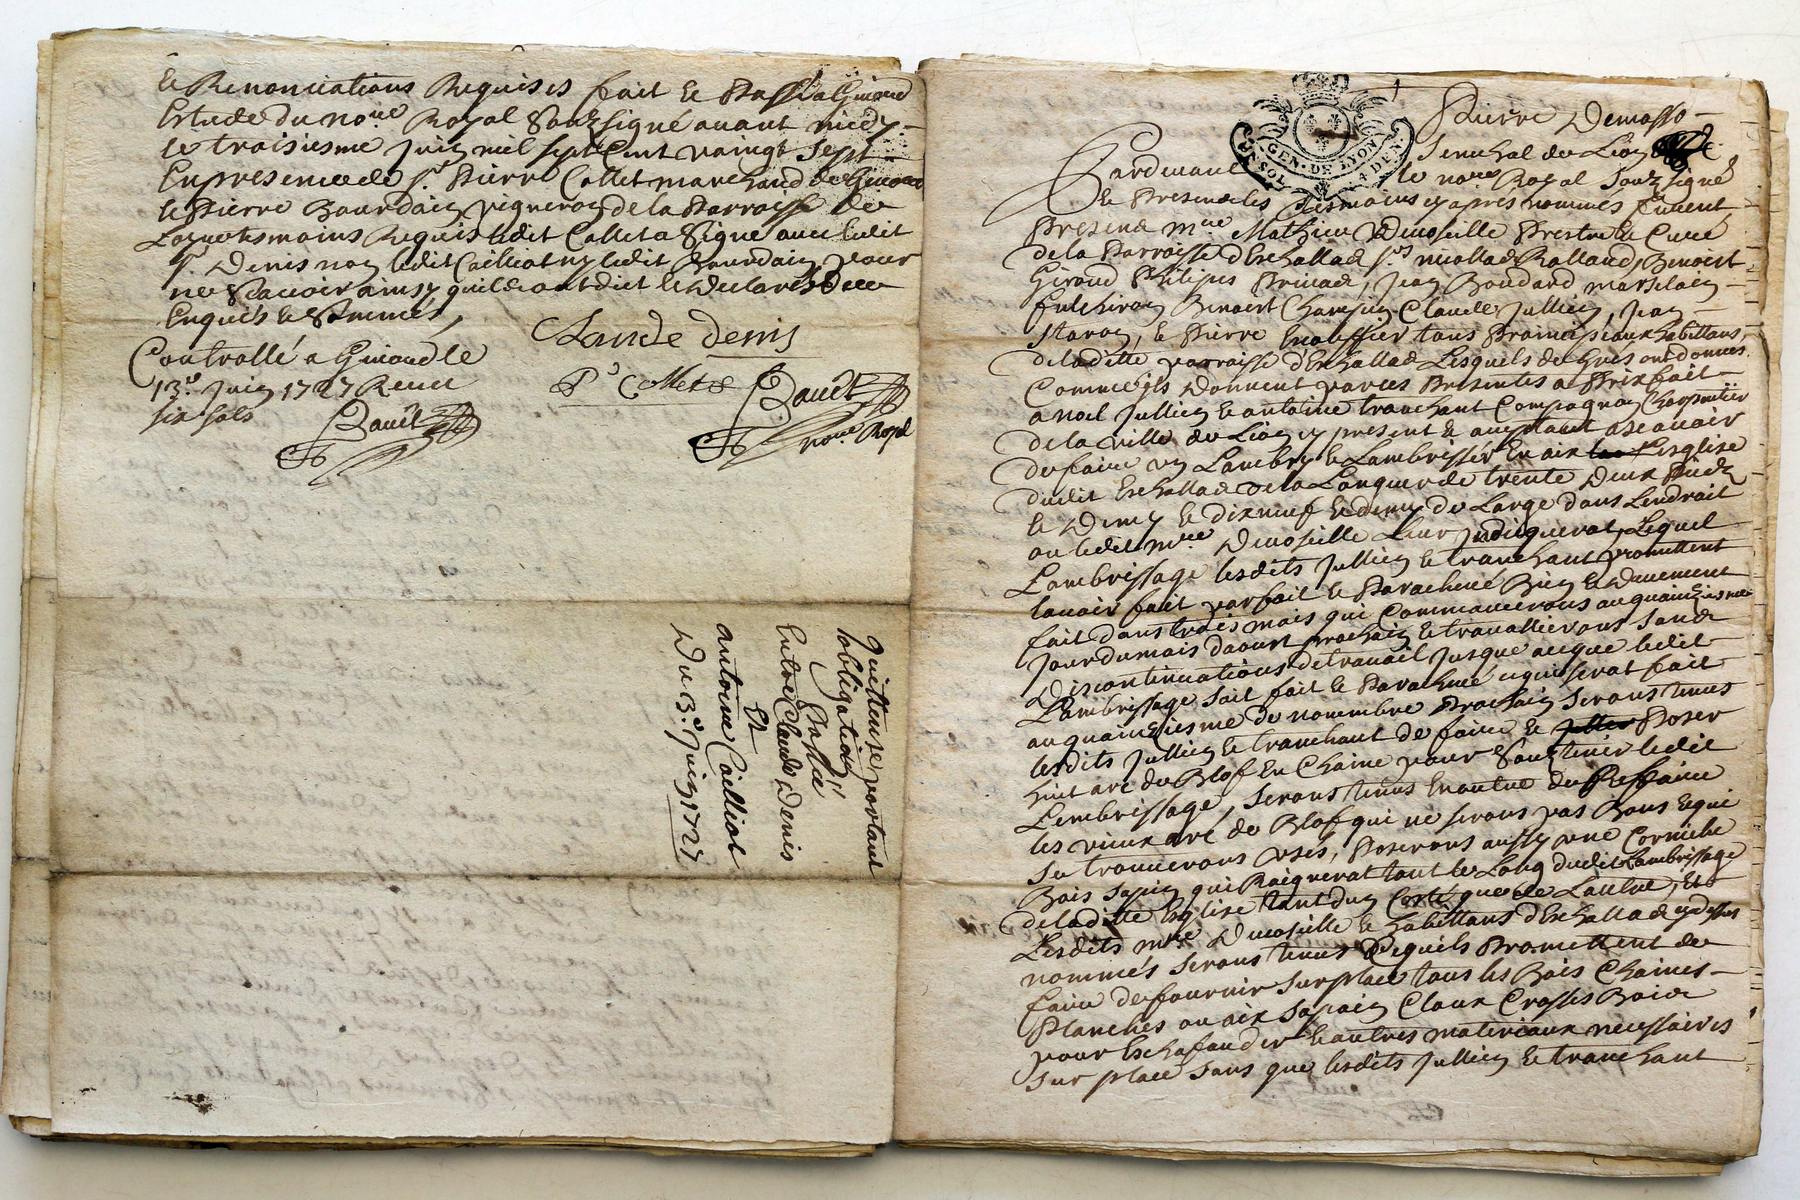 et Renonciations Requises fait et Passé a Givord
Estude du no.re Royal Souzsigné avant midy
le troisiesme Juin mil sept Cent vaingt Sept
En presence de S.r Pierre Collet marchand de Givord
et Pierre Bourdain vigneron de la Parroisse de
tesmoins Requis ledit Collet a Signé avec ledit
S.r Denis non ledit Cailliot ny ledit Bourdain pour
ne Scavoir ainsy quil ont dict et declaré de ce
Enquis et Sommés,
Claude denis
Controllé a Givord le
13.e Juin 1727 Receu
six sols
P.s Collet
Baudt
Baudt
no.re Royal
Quittance portant
lobligation
Passée
Entre Claude Denis
Et
antoine Cailliot
Du 3.e Juin 1727
GEN. DE LYON
SOL 4 DEN.
Pierre Demasso
Senechal de Lion
Pardevant le no.re Royal Souzsigné
Et Presents les tesmoins cy apres nommés furent
Present m.re Mathieu Demoseille Prestre et Curé
de la Parroisse dEschallas S.rs nicollas Rolland, Benoist
Giroud Philipes Jean Boudard marselain
fulchiron Benoist Champin Claude Jullien, Jean
et Pierre tous Principeaux habittans
de laditte parroisse dEschallas Lesquels de Grés ont donnés
Comme ils donnent par ces Presentes a Prixfait
a noel Jullien et antoine tranchant Compagnon Charpentier
de la ville de Lion cy present et aceptant ascavoir
de faire un Lambry et Lambrisser En aix Lesglise
dudit Eschallas de la Longueur de trente deux Pieds
et Demy et dixneuf et demy de Large dans Lendroit
ou ledit m.re Demoseille Leur Judiquerat, Lequel
Lambrissage lesdits Jullien et tranchant promettent
lavoir fait parfait et Parachevé Bien et Deuement
fait dans trois mois qui Commancerons au quainziesme
Jour du mois daoust prochain et travallierons Sans
Discontinuations de travail Jusque ace que ledit
Lambrissage soit fait et Parachevé cequi serat fait
au quainziesme de novembre Prochain Serons tenus
lesdits Jullien et tranchant de faire et Poser
huit arc de Blof En Chaine pour Souztenir ledit
Lembrissage, Serons tenus En outre de Reffaire
les vieux arc de Blof qui ne serons pas Bons et qui
Se trouverons usés, Poserons aussy une Corniche
Bois Sapin qui Raignerat tout le Long dudit Lambrissage
de laditte Esglise tant dun Corté que de Lautre, Et
Lesdits m.re Demoseille et habittans dEschallas cydessus
nommés serons tenus Lequels Promettent de
faire de fournir Sur place tous les Bois Chaines
Planches ou aix Sapain Cloux Crosses Bois
pour Eschafauder et autres materiaux necessaires
Sur place Sans que lesdits Jullien et tranchant